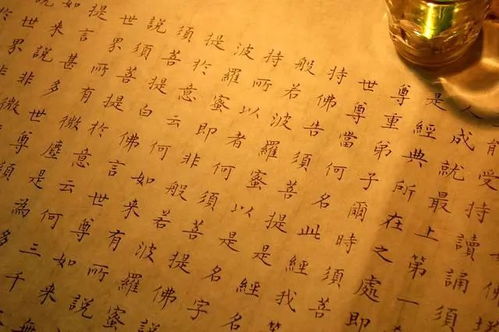 有受持讀誦須
人成就最上第一
是經典所在之處即
尊重弟子爾時須菩
世尊當何名此經我
持佛告須菩提是經
般若波羅蜜以是名字
持所以者何須菩提佛
波羅蜜即非般若波羅蜜
提於意云何如來有所說
須菩提白佛言世尊如來
說須菩提於意云何三千
世界所有微塵是為多
提言甚多世尊
如來說非微
說世界